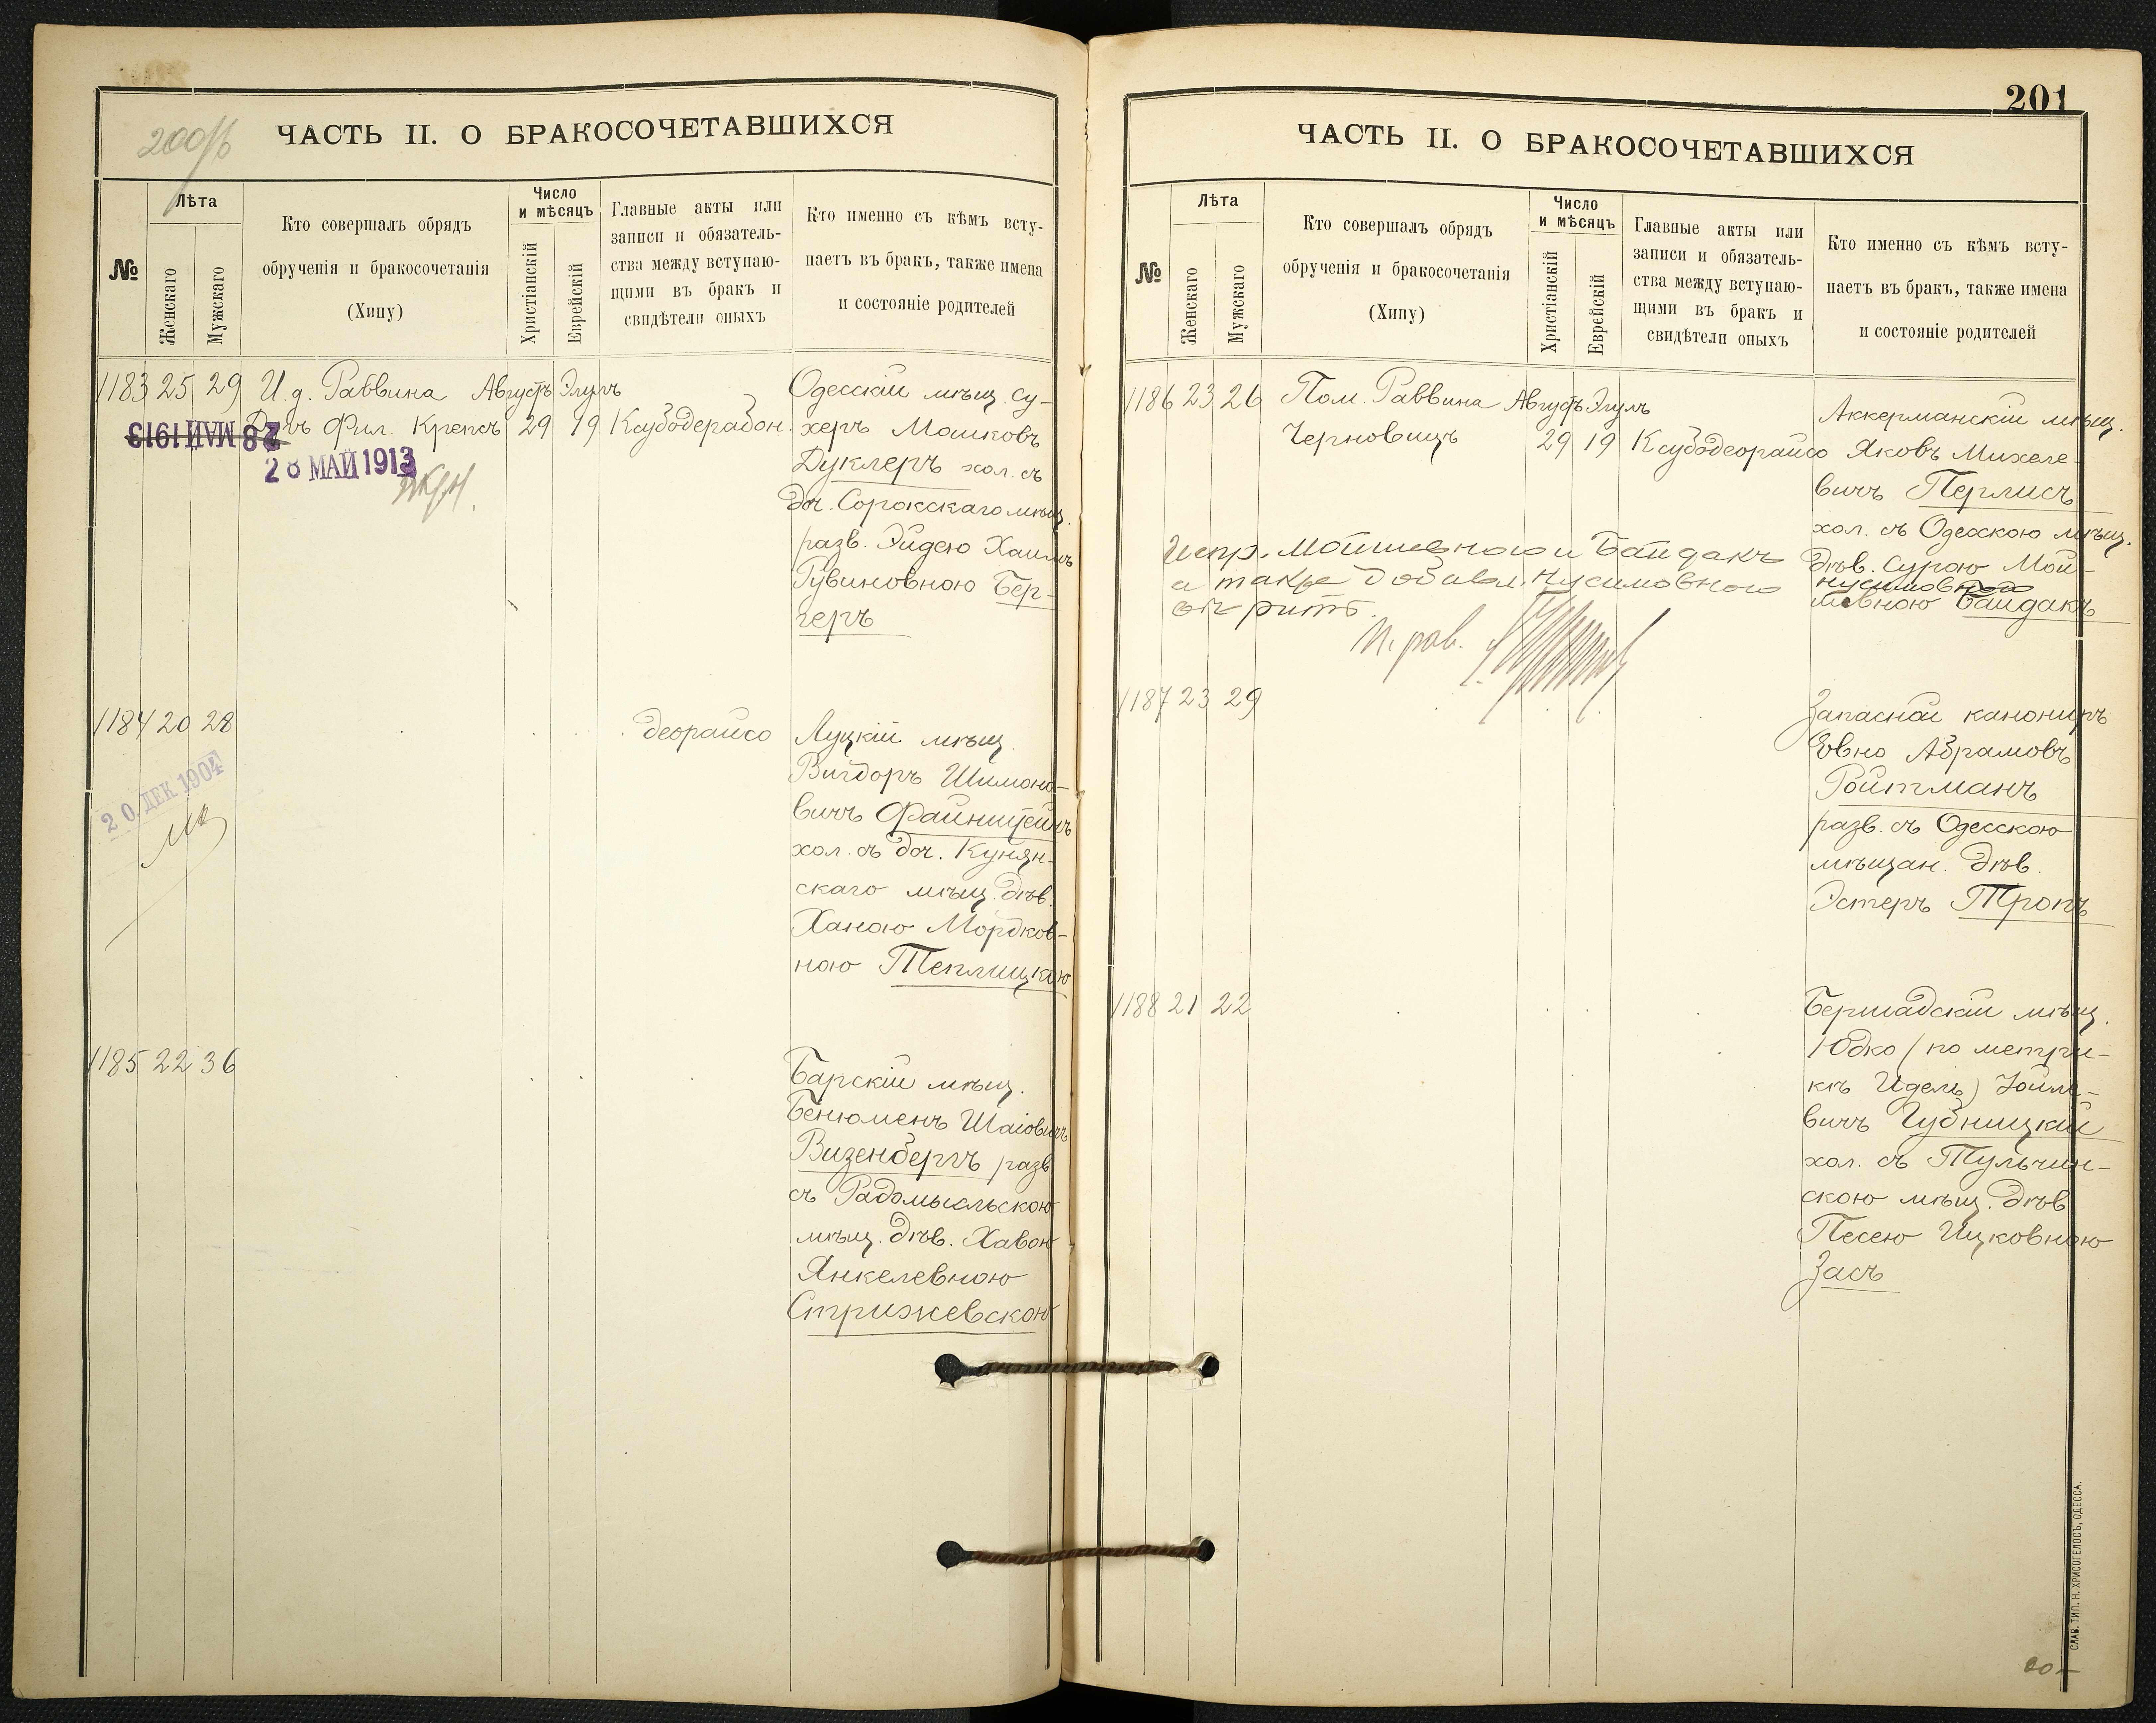 200/б
ЧАСТЬ II. О БРАКОСОЧЕТАВШИХСЯ
№
Лѣта
Женскаго
Мужскаго
Кто совершалъ обрядъ
обрученія и бракосочетанія
(Хипу)
Число
и мѣсяцъ
Христіанскій
Еврейскій
Главные акты или
записи и обязатель-
ства между вступаю-
щими въ бракъ и
свидѣтели оныхъ
Кто именно съ кѣмъ всту-
паетъ въ бракъ, также имена
и состояніе родителей
1183 25 29 И.д. Раввина Августъ Элулъ
Фил. Крепсъ 29 19 Ксубодерабон.
28 МАЙ 1913
28 МАЙ 1913
Одесскій мѣщ. Су-
херъ Мошковъ
Дуклеръ хол. съ
дч. Сорокскаго мѣщ.
разв. Эйдею Хаимъ
Рувиновною Бер-
геръ
1184 20 28 деорайсо
20 ДЕК 1904
Луцкій мѣщ.
Вигдоръ Шимоно-
вичъ Файнштейнъ
хол. съ дч. Купян-
скаго мѣщ. дѣв.
Ханою Мордков-
ною Теплицкою
1185 22 36
Барскій мѣщ.
Бенюменъ Шаіовичъ
Визенбергъ разв.
съ Радомысльскою
мѣщ. дѣв. Хавою
Янкелевною
Стрижевскою
201
ЧАСТЬ II. О БРАКОСОЧЕТАВШИХСЯ
№
Лѣта
Женскаго
Мужскаго
Кто совершалъ обрядъ
обрученія и бракосочетанія
(Хипу)
Число
и мѣсяцъ
Христіанскій
Еврейскій
Главные акты или
записи и обязатель-
ства между вступаю-
щими въ бракъ и
свидѣтели оныхъ
Кто именно съ кѣмъ всту-
паетъ въ бракъ, также имена
и состояніе родителей
1186 23 26 Пом. Раввина Августъ Элулъ
Черновицъ 29 19 Ксубодеорайсо
Аккерманскій мѣщ.
Яковъ Михеле-
вичъ Перлисъ
хол. съ Одесскою мѣщ.
дѣв. Сурою Мой-
нусимовною
шевною Байдакъ
Испр. Мойшевною и Байдакъ
а также добавл. Нусимовною
П. рав.
1187 23 29
Запасной канониръ
Іовно Абрамовъ
Ройтманъ
разв. съ Одесскою
мѣщан. дѣв.
Эстеръ Тропъ
1188 21 22
Бершадскій мѣщ.
Юдко (по метри-
кѣ Идель) Іойле-
вичъ Губницкій
хол. съ Тульчин-
скою мѣщ. дѣв
Песею Ицковною
Засъ
СЛАВ. ТИП. Н. ХРИСОГЕЛОСЪ, ОДЕССА.